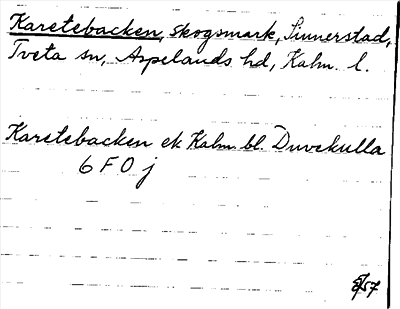 Karetebacken, skogsmark, Sinnerstad,
Tveta sn, Aspelands hd, Kalm. l.
Karetebacken ek Kalm. bl. Duvekulla
6 F 0 j